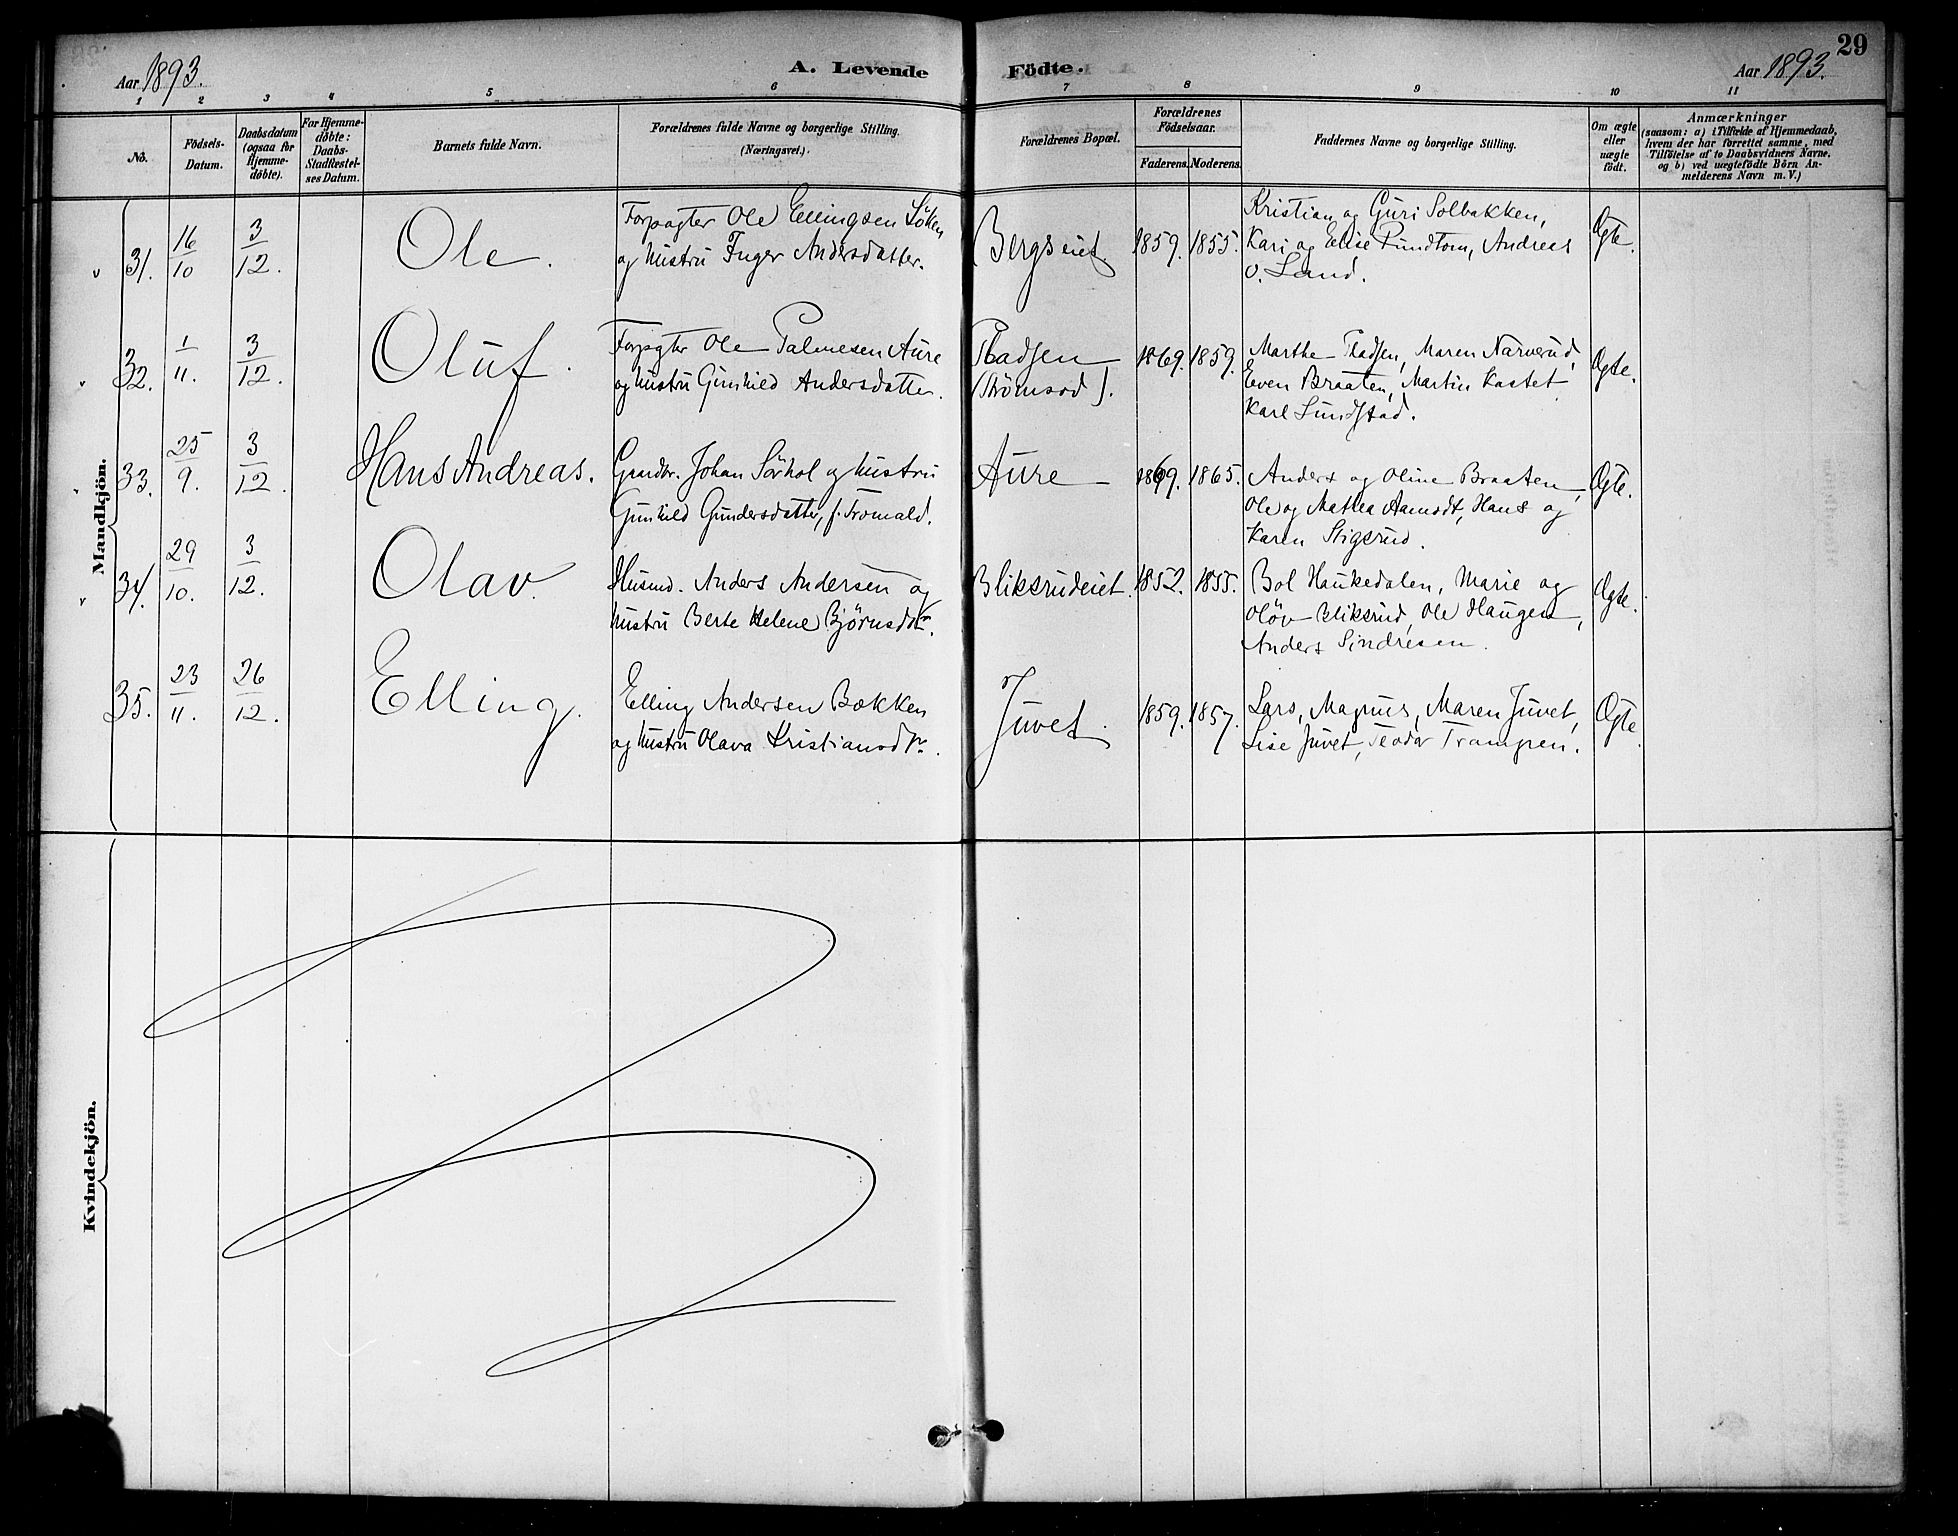 29
Aar 1893.
A. Levende Födte.
Aar 1893.
1 2 3 4 5 6 7 8 9 10 11
No.
Födsels-
Datum.
Daabsdatum
(ogsaa for
Hjemme-
döbte).
For Hjemme-
döbte:
Daabs-
Stadfæstel-
ses Datum.
Barnets fulde Navn.
Forældrenes fulde Navne og borgerlige Stilling.
(Næringsvei.)
Forældrenes Bopæl.
Forældrenes
Födselsaar.
Faderens. Moderens.
Faddernes Navne og borgerlige Stilling.
Om ægte
eller
uægte
födt.
Anmærkninger
(saasom: a) i Tilfælde af Hjemmedaab,
hvem der har forrettet samme, med
Tilföielse af to Daabsvidners Navne,
og b) ved uægtefödte Börn An-
melderens Navn m. V.)
Mandkjön.
31. 16/10 3/12. Ole.
Forpagter Ole Ellingsen Löken
og hustru Inger Andersdatter.
Bergseiet. 1859. 1855.
Kristian og Guri Solbakken,
Kari og Elise Rundtom, Andreas
v. Land.
Ægte.
32. 1/11. 3/12. Oluf.
Forpgter Ole Palmesen Aure
og hustru Gunhild Andersdatter.
Pladsen
(Strömsod).
1869. 1859.
Marthe Pladsen, Maren Narverud,
Even Braaten, Martin Kastet
Karl Lundstad.
Ægte.
33. 25/9. 3/12. Hans Andreas.
Gaardbr. Johan Sørhol og hustru
Gunhild Gundersdatter, f. Tromald.
Aure 1869. 1865.
Anders og Oline Braaten,
Ole og Mathea Aamodt, Hans og
Karen Stigsrud.
Ægte.
34. 29/10. 3/12. Olav.
Husmd. Anders Andersen og
hustru Berte Helene Bjørnsdtr.
Bliksrudeiet. 1852. 1855.
Bol Haukedalen, Marie og
Oløv Bliksrud, Ole Haugen,
Anders Sindresen.
Ægte.
35. 23/11. 26/12. Elling.
Elling Andersen Bækken
og hustru Olava Kristiansdtr.
Juvet. 1859. 1857.
Lars, Magnus, Maren Juvet,
Lise Juvet, Teodor Trampen.
Ægte.
Kvindekjön.